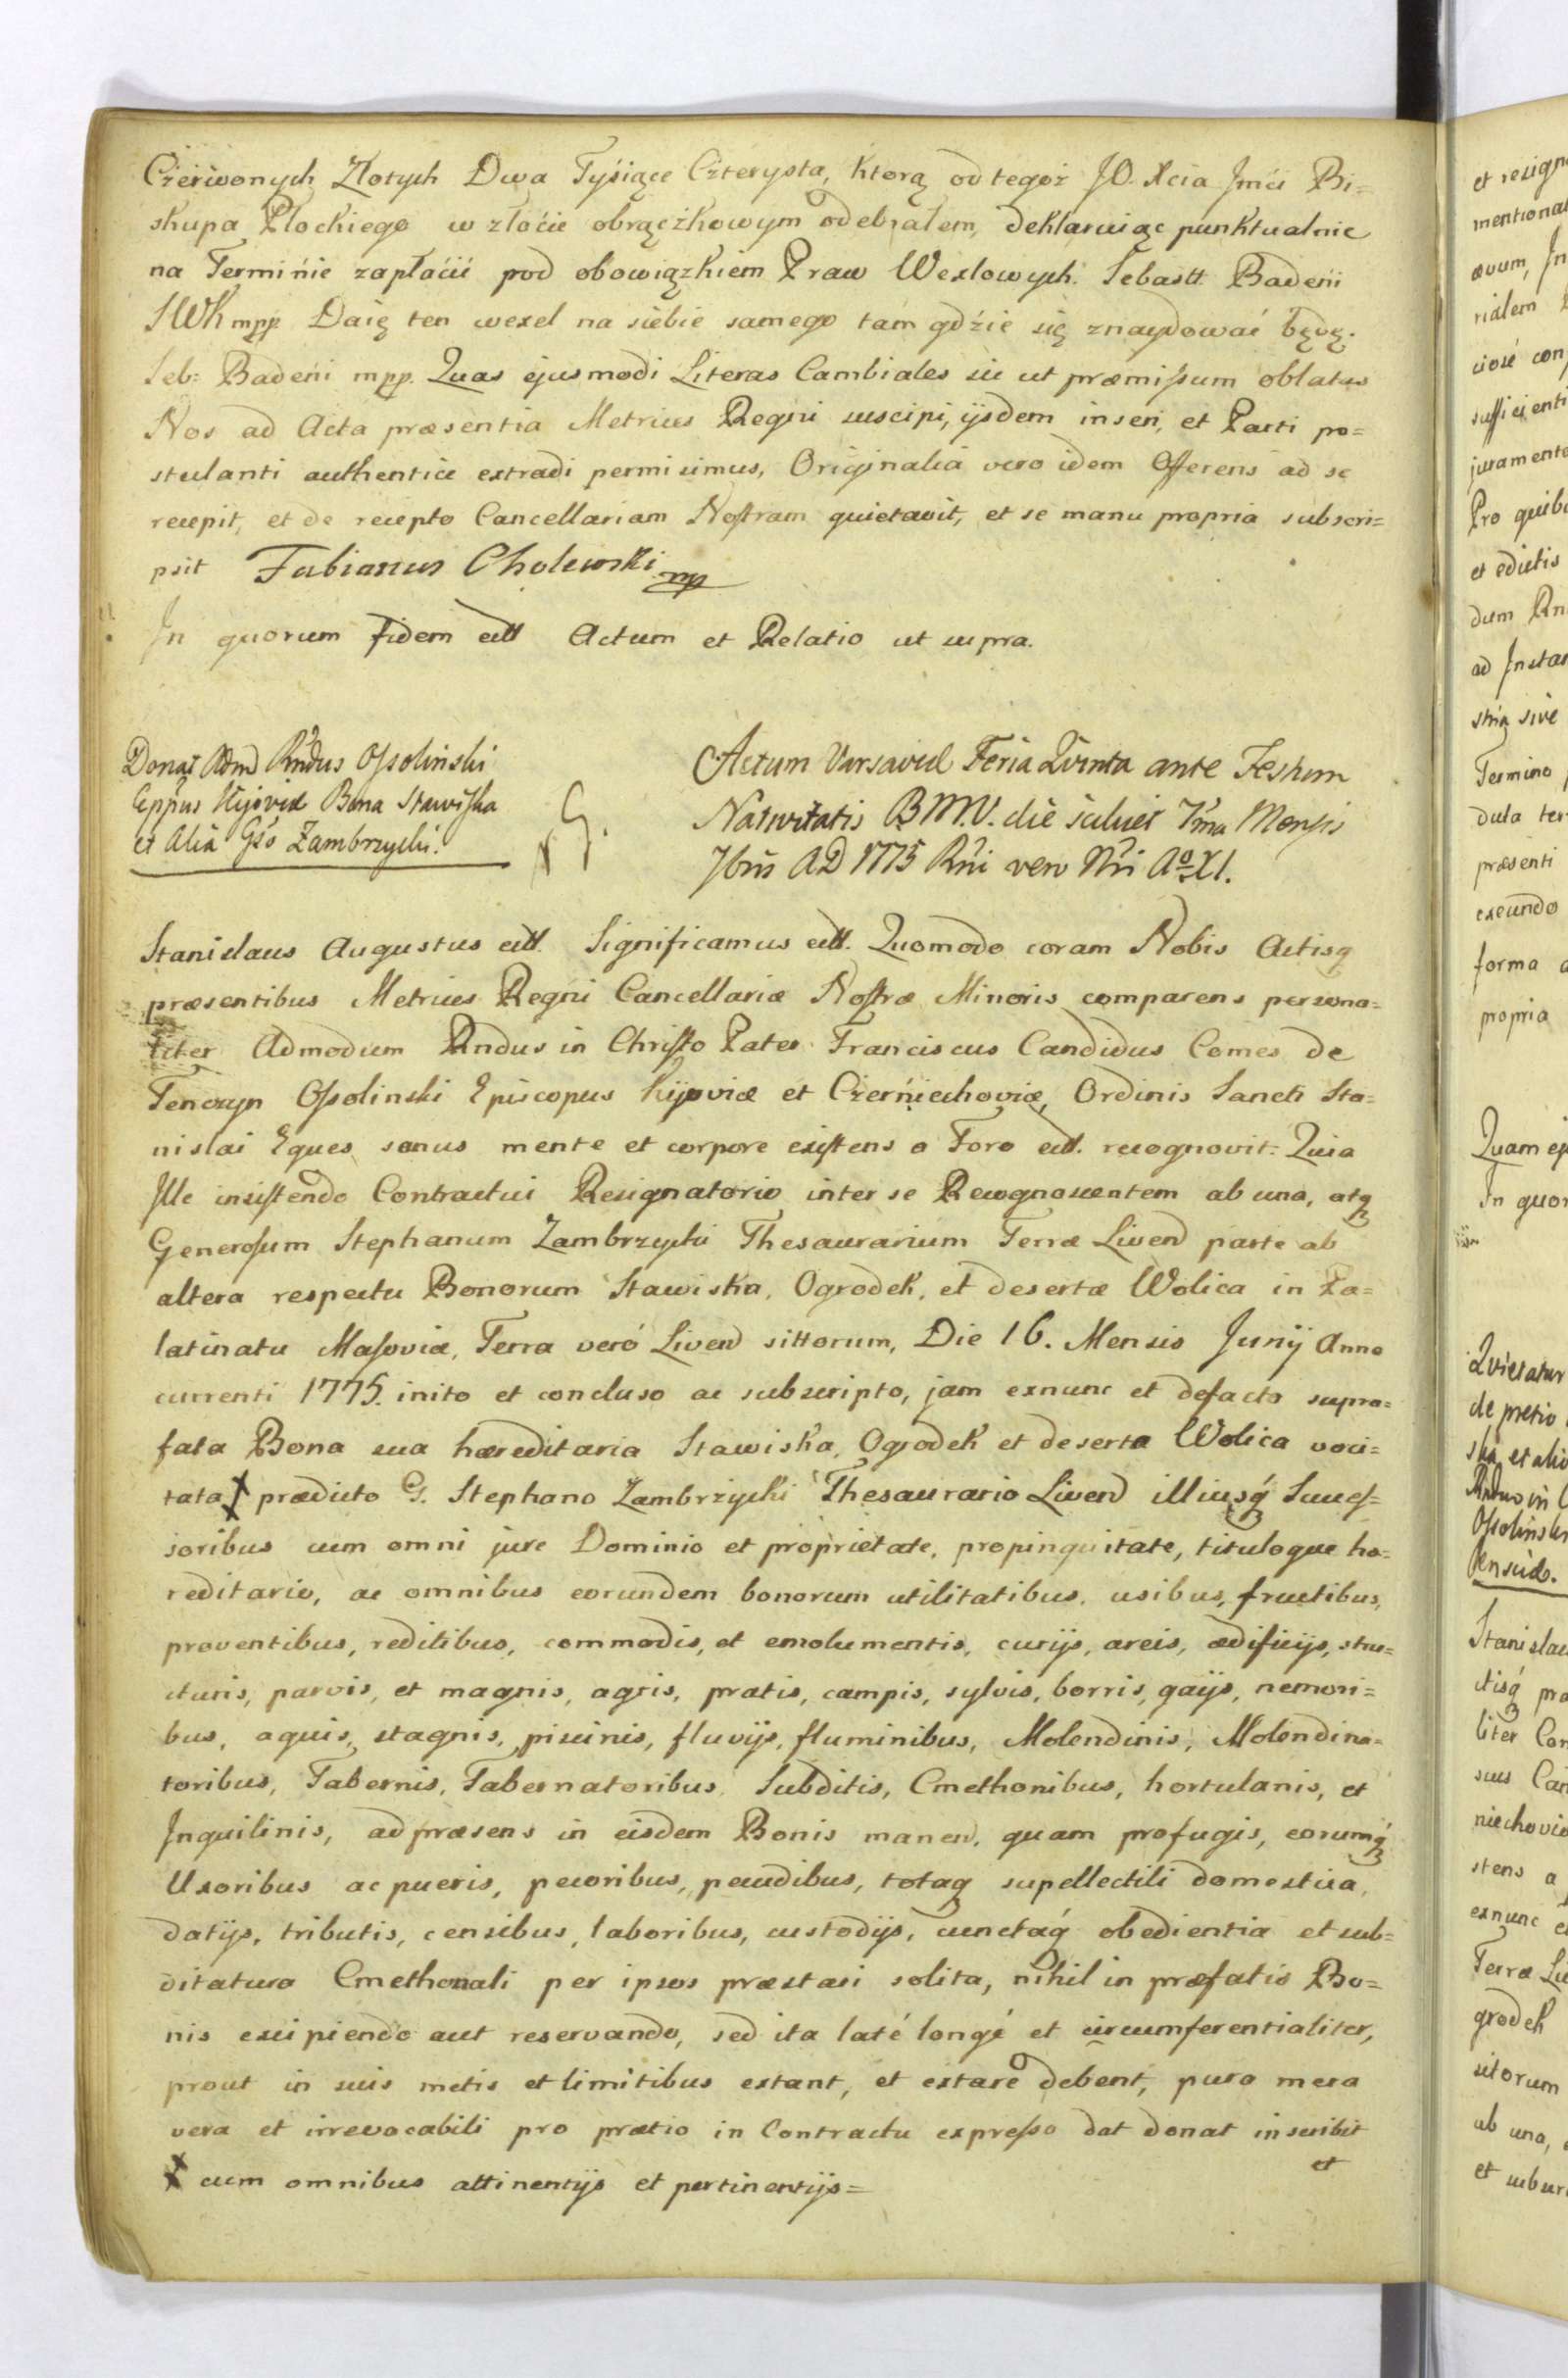 Czerwonych Złotych Dwa Tysiące Czterysta, którą od tegoż JO. Xcia Jmći Bi=
skupa Płockiego w złocie obrączkowym odebrałem, deklaruiąc punktualnie
na Terminie zapłacić pod obowiązkiem Praw Wexlowych. Sebastt Badeni
SWK mpp. Daię ten wexel na siebie samego tam gdzie się znaydować będę.
Seb: Badeni mpp. Quas ejusmodi Literas Cambiales sic ut præmissum oblatas
Nos ad Acta præsentia Metrices Regni suscipi, ijsdem inseri, et Parti po=
stulanti authentice extradi permisimus, Originalia vero idem Offerens ad se
recepit, et de recepto Cancellariam Nostram quietavit, et se manu propria subscri=
psit Fabianus Cholewski mp
In quorum fidem ett Actum et Relatio ut supra.
Donat Admd Rndus Ossolinski
Eppus Kijoviæ Bona Stawiska
et Alia Gso Zambrzycki.
Actum Varsaviæ Feria Qvinta ante Festum
Nativitatis B.M.V. die scilicet 7ma Mensis
7bris AD 1775 Rni vero Nri Ao XI.
Stanislaus Augustus ett. Significamus ett. Quomodo coram Nobis Actisq
præsentibus Metrices Regni Cancellariæ Nostræ Minoris comparens persona=
liter Admodum Rndus in Christo Pater Franciscus Candidus Comes de
Tenczyn Ossolinski Episcopus Kijoviæ et Czerniechoviæ, Ordinis Sancti Sta=
nislai Eques sanus mente et corpore existens a Foro ett. recognovit: Quia
Ille insistendo Contractui Resignatorio inter se Recognoscentem ab una, atq
Generosum Stephanum Zambrzycki Thesaurarium Terræ Livend parte ab
altera respectu Bonorum Stawiska, Ogrodek, et desertæ Wolica in Pa=
latinatu Masoviæ, Terra veró Livend sittorum, Die 16. Mensis Junij Anno
currenti 1775. inito et concluso ac subscripto, jam exnunc et defacto supra=
fata Bona sua hæreditaria Stawiska, Ogrodek et deserta Wolica voci=
tata X prædicto G. Stephano Zambrzycki Thesaurario Livend illiusq́ Succes=
soribus cum omni jure Dominio et proprietate, propinquitate, tituloque hæ=
reditario, ac omnibus eorundem bonorum utilitatibus, usibus, fructibus,
proventibus, reditibus, commodis, et emolumentis, curijs, areis, ædificijs, stru=
cturis, parvis, et magnis, agris, pratis, campis, sylvis, borris, gaijs, nemori=
bus, aquis, stagnis, piscinis, fluvijs, fluminibus, Molendinis, Molendina=
toribus, Tabernis, Tabernatoribus, Subditis, Cmethonibus, hortulanis, et
Inquilinis, ad præsens in eisdem Bonis manend, quam profugis, eorumq́
Uxoribus ac pueris, pecoribus, pecudibus, totaq supellectili domestica,
datijs, tributis, censibus, laboribus, custodijs, cunctaq́ obedientia et sub=
ditatura Cmethonali per ipsos præstari solita, nihil in præfatis Bo=
nis excipiendo aut reservando, sed ita laté longé et circumferentialiter,
prout in suis metis et limitibus extant, et extare debent, pura mera
vera et irrevocabili pro prætio in Contractu expresso dat donat inscribit
et
X cum omnibus attinentijs et pertinentijs=
et resign
mentionat
ævum, In
rialem
ciose con
sufficienti
juramento
Pro quibu
et edictis
dum
ad Instan
sive
Termino
dula ter
præsenti
exeundo
forma
propria
Quam ej
In quor
Qvietatur
de pretio
ska et alio
Rndus in C
Ossolinski
Stanislau
ctisq́ pra
liter Con
sus Can
niechoviæ
stens a
exnunc e
Terræ Liv
grodek
sitorum
ab una,
et subscri